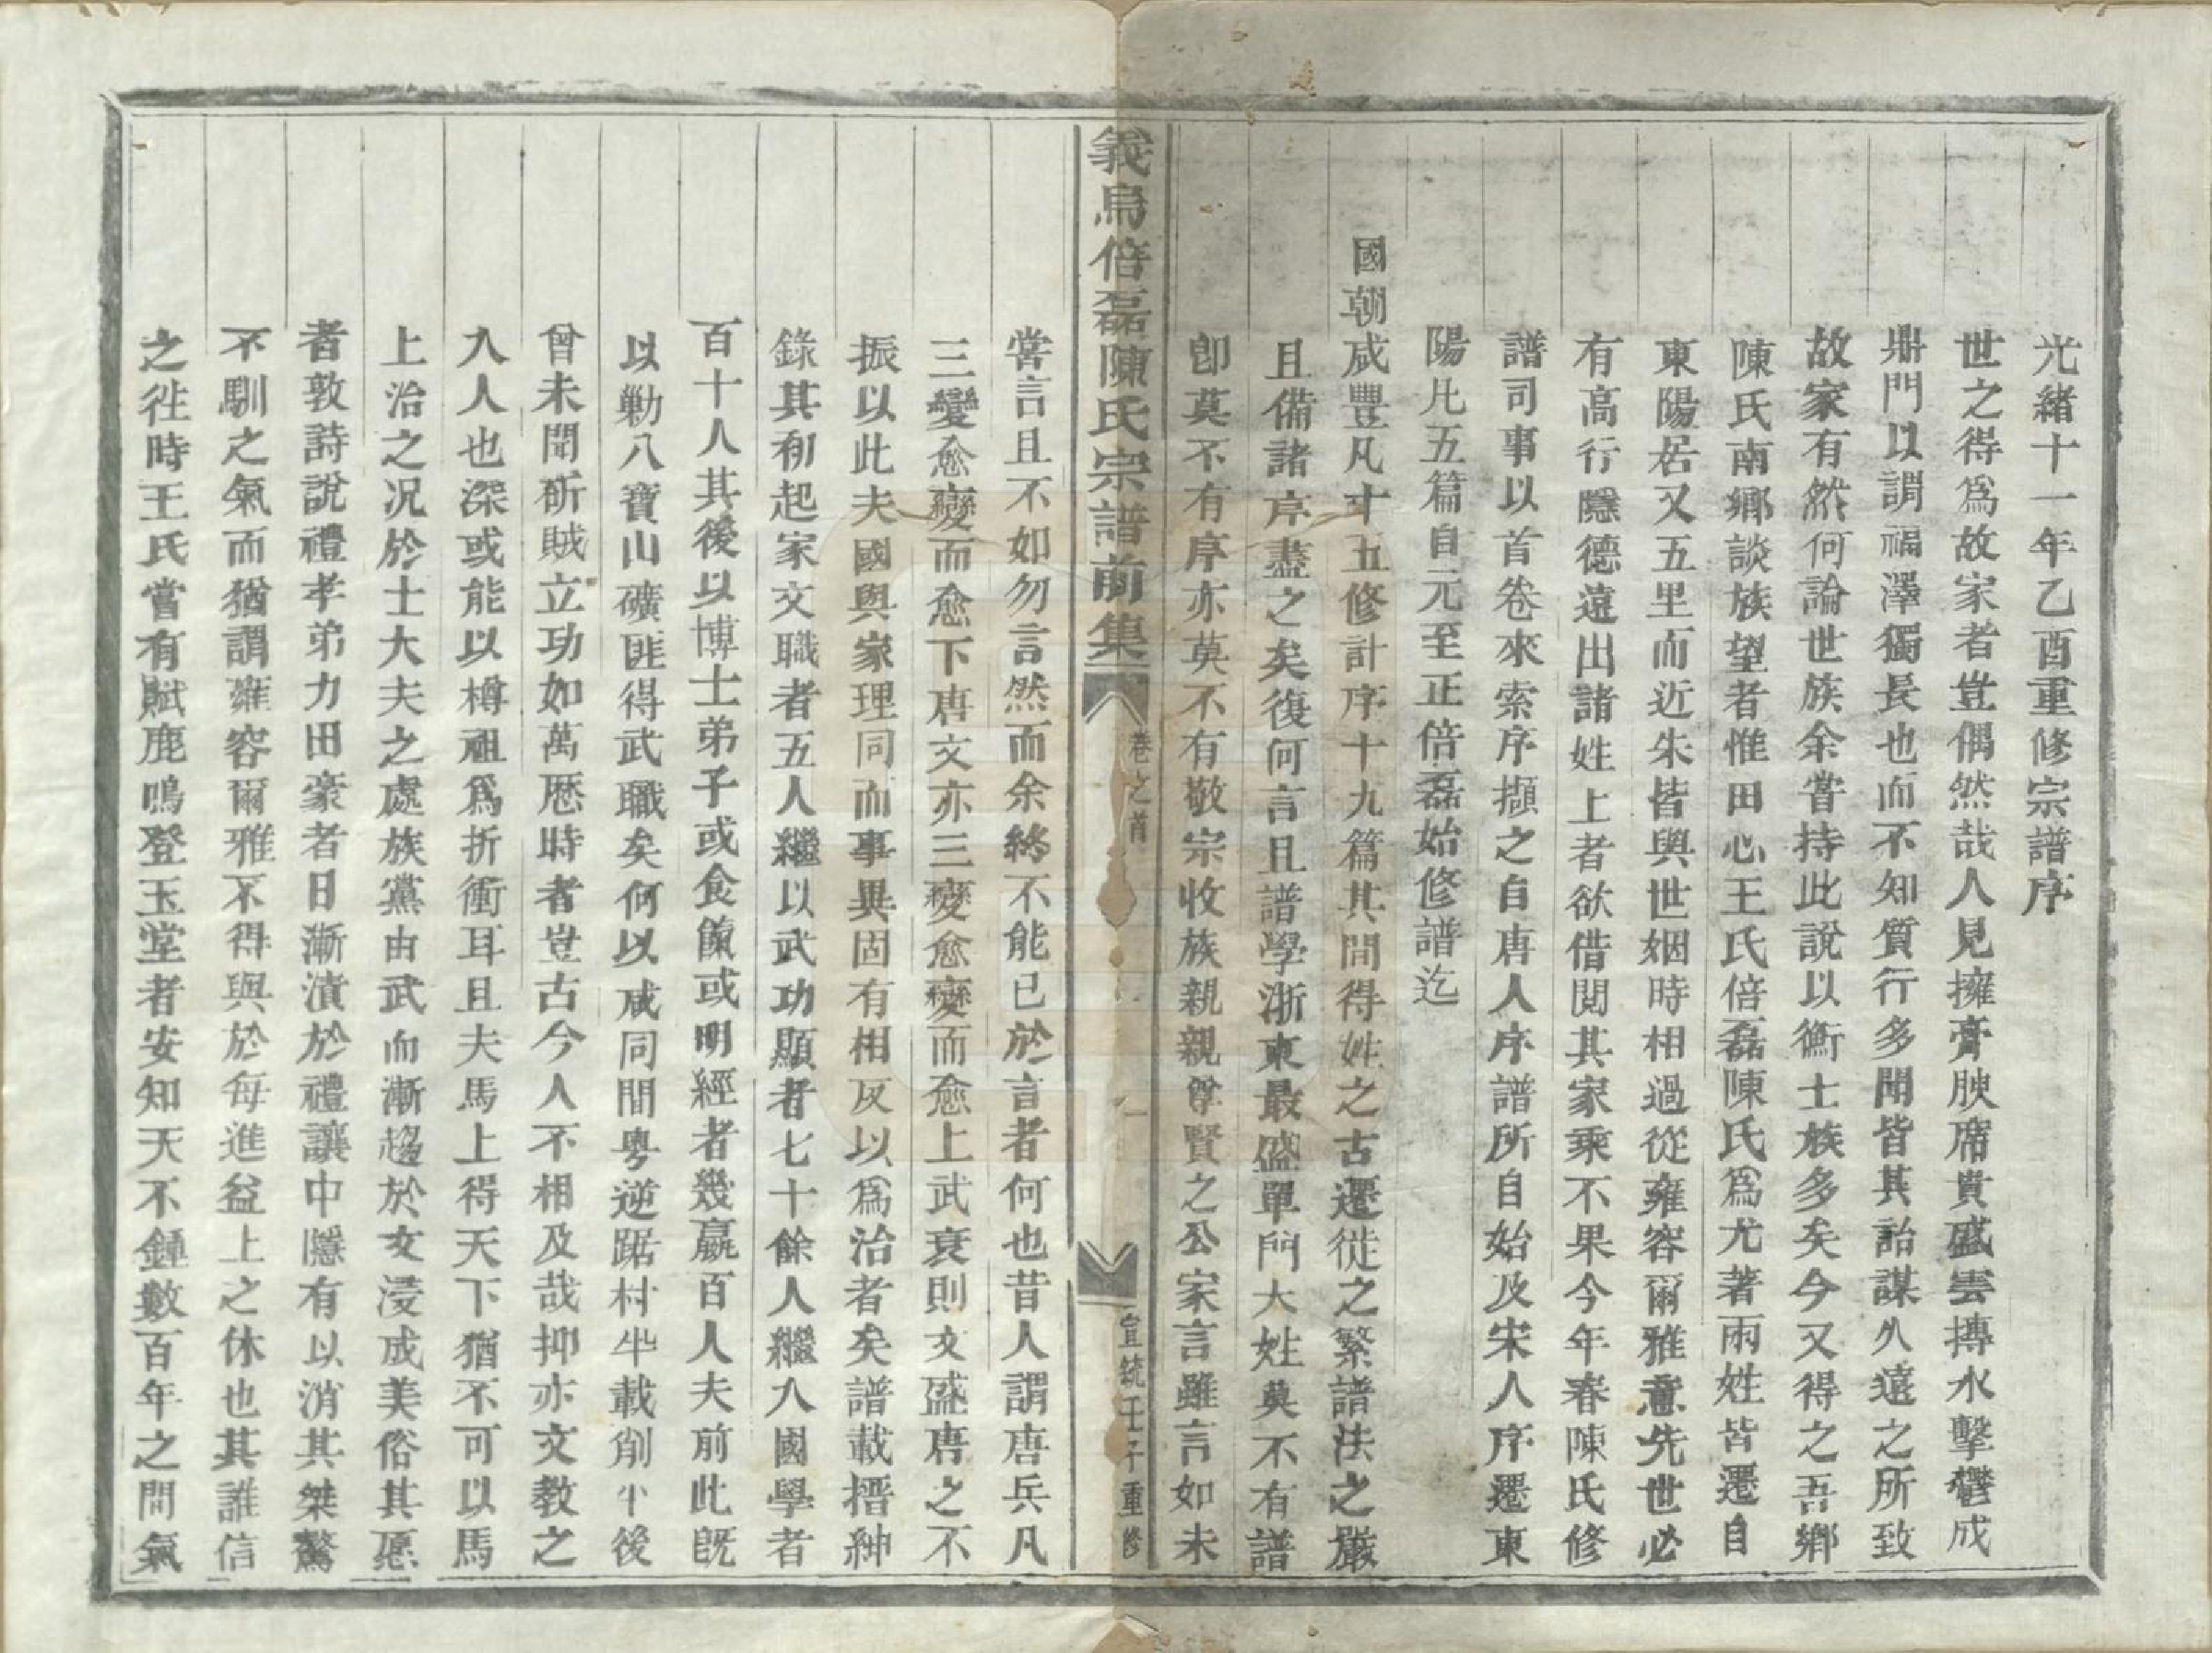 光緒十一年乙酉重修宗譜序
世之得爲故家者豈偶然哉人見擁膏腴席貴盛雲摶水擊鬱成
鼎門以謂福澤獨長也而不知質行多聞皆其詒謀久遠之所致
故家有然何論世族余嘗持此說以衡士族多矣今又得之吾鄉
陳氏南鄉談族望者惟田心王氏倍磊陳氏爲尤著兩姓皆遷自
東陽居又五里而近朱皆與世姻時相過從雍容爾雅意先世必
有高行隱德遠出諸姓上者欲借閱其家乘不果今年春陳氏修
譜司事以首卷來索序擷之自唐人序譜所自始及宋人序遷東
陽凡五篇自元至正倍磊始修譜迄
國朝咸豐凡十五修計序十九篇其間得姓之古遷徙之繁譜法之嚴
且備諸序盡之矣復何言且譜學浙東最盛單門大姓莫不有譜
卽莫不有序亦莫不有敬宗收族親親尊賢之公家言雖言如未
義烏倍磊陳氏宗譜前集
卷之首
一
宣統壬子重修
嘗言且不如勿言然而余終不能已於言者何也昔人謂唐兵凡
三變愈變而愈下唐文亦三變愈變而愈上武衰則文盛唐之不
振以此夫國與家理同而事異固有相反以爲治者矣譜載搢紳
錄其初起家文職者五人繼以武功顯者七十餘人繼入國學者
百十人其後以博士弟子或食餼或明經者幾嬴百人夫前此旣
以勦八寶山礦匪得武職矣何以咸同間粵逆踞村半載削平後
曾未聞斫賊立功如萬歷時者豈古今人不相及哉抑亦文教之
入人也深或能以樽俎爲折衝耳且夫馬上得天下猶不可以馬
上治之況於士大夫之處族黨由武而漸趨於文浸成美俗其愿
者敦詩說禮孝弟力田豪者日漸漬於禮讓中隱有以消其桀驁
不馴之氣而猶謂雍容爾雅不得與於每進益上之休也其誰信
之往時王氏嘗有賦鹿鳴登玉堂者安知天不鍾數百年之間氣